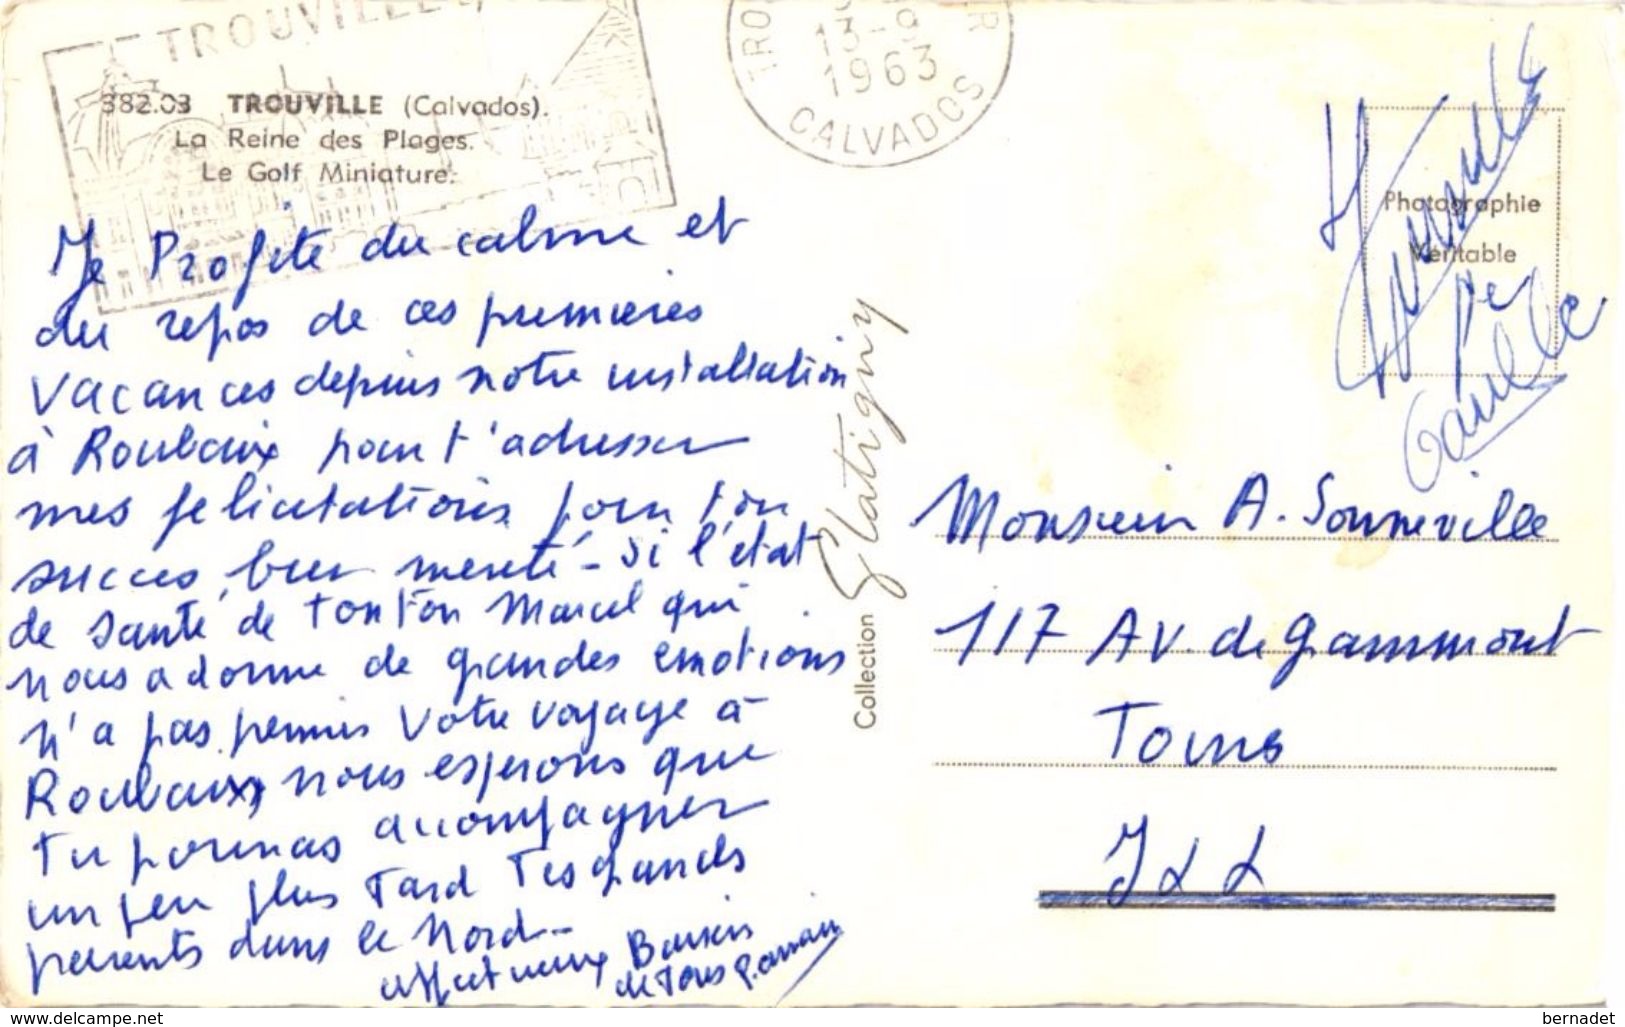 TROUVILLE
382.03 TROUVILLE (Calvados).
La Reine des Plages.
Le Golf Miniature.
13-9
1963
CALVADOS
Je Profite du calme et
du repos de ces premieres
vacances depuis notre installation
à Roubaix pour t'adresser
mes felicitations pour ton
succes, bien merité - Si l'état
de santé de tonton Marcel qui
nous a donné de grandes emotions
n'a pas permis votre voyage à
Roubaix, nous esperons que
tu pourras accompagner
un peu plus Tard Tes grands
parents dans le Nord -
affectueux Baisers
de Tous
Collection Glatigny
Photographie
Véritable
Monsieur A. Sonneville
117 Av. de grammont
Tours
I & L
www.delcampe.net
bernadet